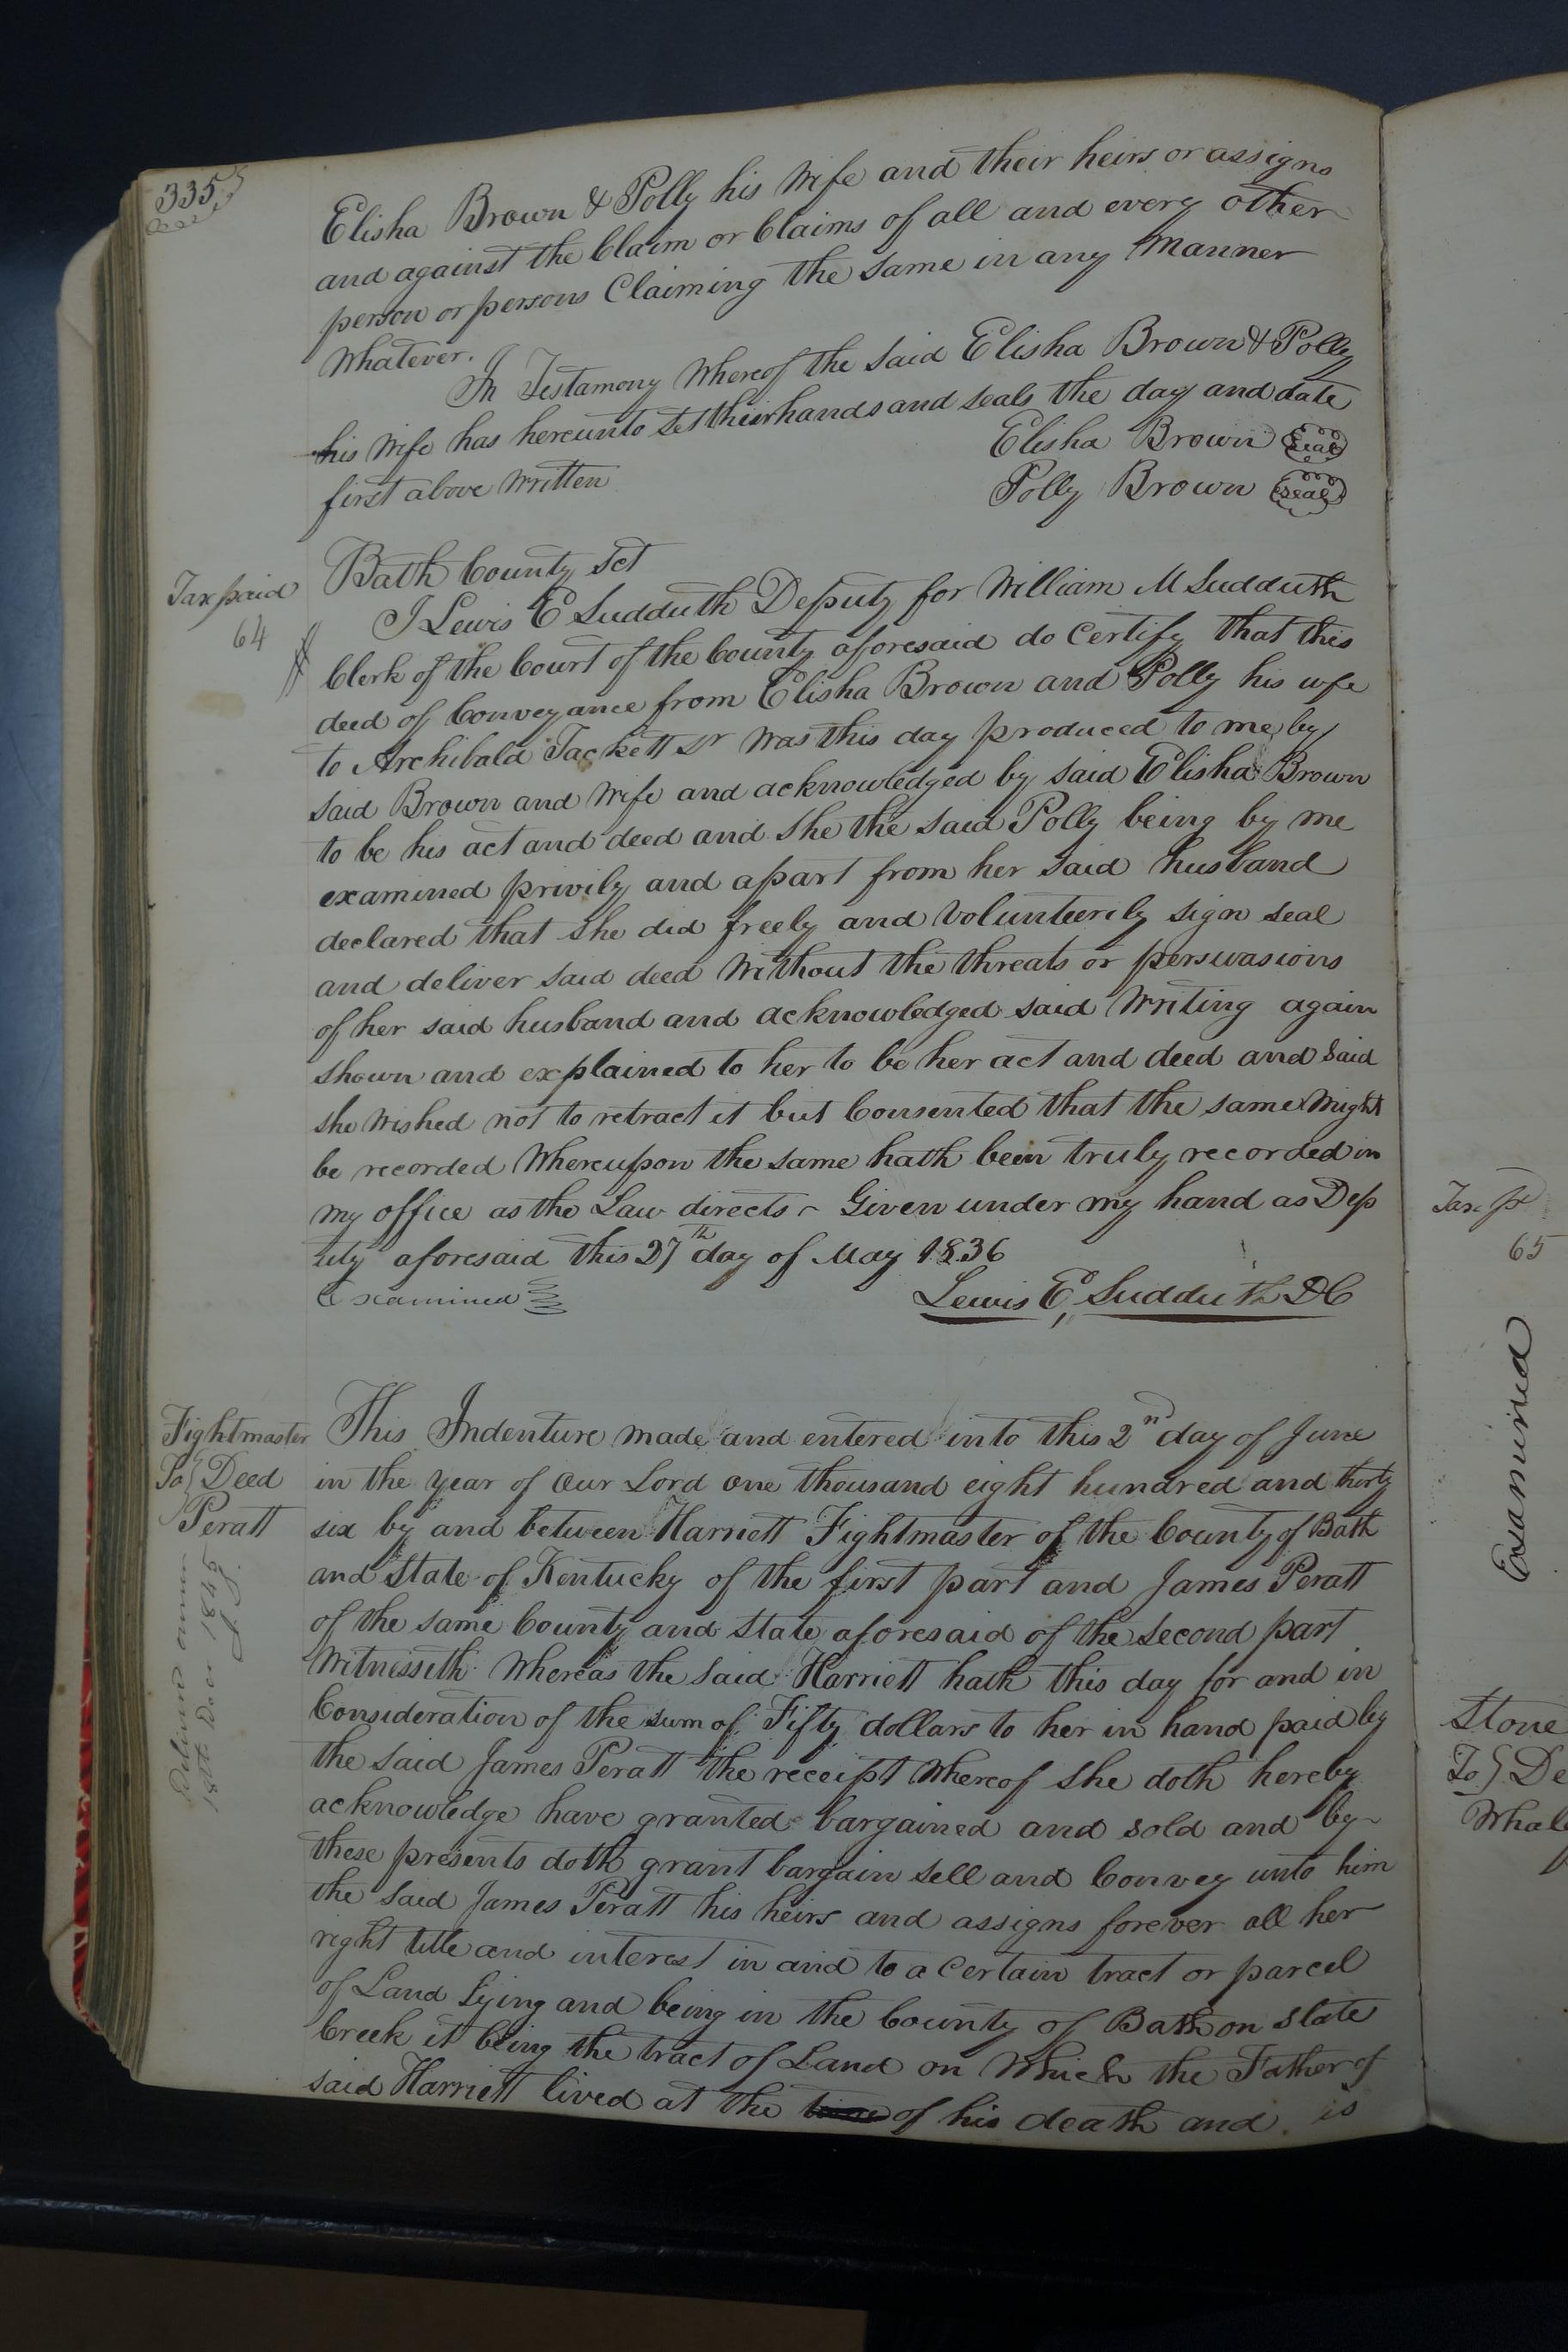 335
Elisha Brown & Polly his Wife and their heirs or assigns
and against the Claim or Claims of all and every other
person or persons Claiming the same in any Manner
Whatever.
In Testamony Whereof the said Elisha Brown & Polly
his Wife has hereunto set their hands and seals the day and date
first above Written
Elisha Brown seal
Polly Brown seal
Tax paid
64
Bath County Sct
I Lewis E Sudduth Deputy for William M Sudduth
Clerk of the Court of the County aforesaid do Certify that this
deed of Conveyance from Elisha Brown and Polly his wife
to Archibald Tackett Sr Was this day produced to me by
said Brown and Wife and acknowledged by said Elisha Brown
to be his act and deed and she the said Polly being by me
examined privily and apart from her said husband
declared that she did freely and Volunteerily sign seal
and deliver said deed Without the threats or perswasions
of her said husband and acknowledged said Writing again
shown and explained to her to be her act and deed and said
she Wished not to retract it but Consented that the same Might
be recorded Whereupon the same hath been truly recorded in
my office as the Law directs - Given under my hand as Dep
uty aforesaid this 27th day of May 1836
Examined
Lewis E, Sudduth DC
Fightmaster
To } Deed
Peratt
Delivered owner
18th Decr 1845
This Indenture made and entered into this 2nd day of June
in the year of our Lord one thousand eight hundred and thirty
six by and between Harriett Fightmaster of the County of Bath
and State of Kentucky of the first part and James Peratt
of the same County and State aforesaid of the second part
Witnesseth Whereas the said Harriett hath this day for and in
Consideration of the sum of Fifty dollars to her in hand paid by
the said James Peratt the receipt Whereof she doth hereby
acknowledge have granted bargained and sold and by
these presents doth grant bargain sell and Convey unto him
the said James Peratt his heirs and assigns forever all her
right title and interest in and to a Certain tract or parcel
of Land Lying and being in the County of Bath on Slate
Creek it being the tract of Land on Which the Father of
said Harriett lived at the time of his death and is
Tax p
65
Examined
Stone
To } De
Whal